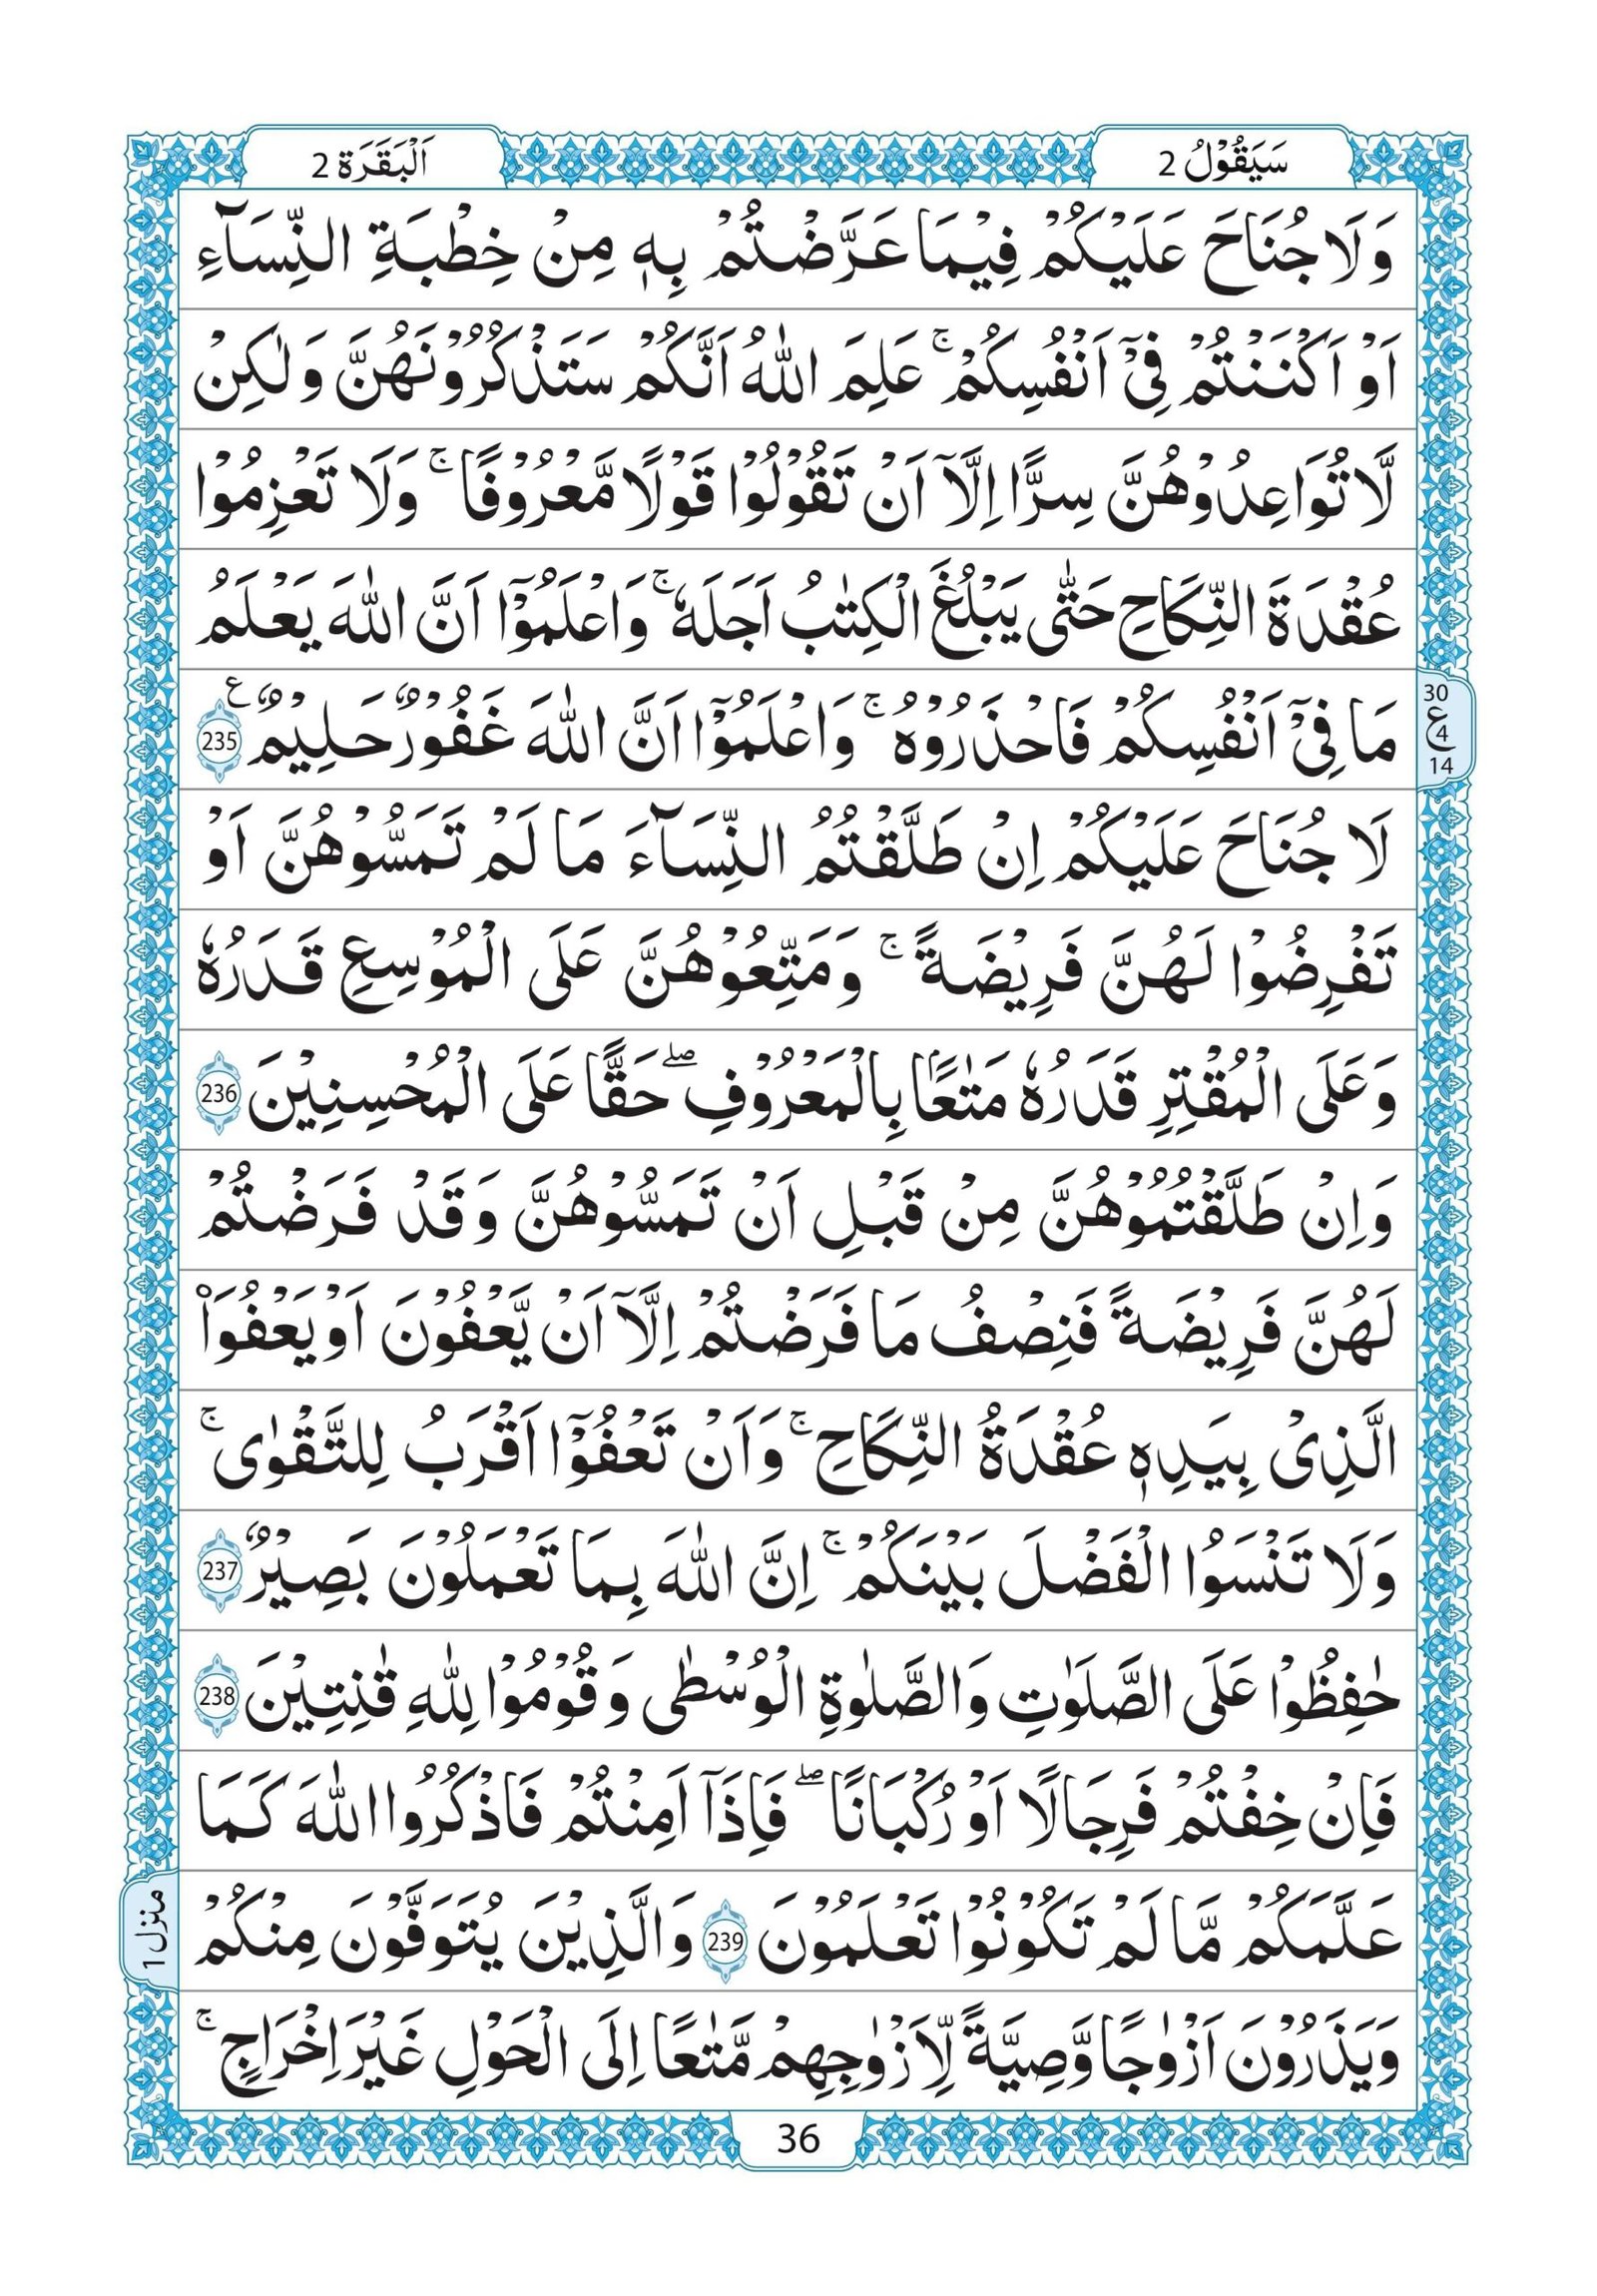 سَيَقُوْلُ 2
اَلْبَقَرَة 2
وَلَا جُنَاحَ عَلَيْكُمْ فِيْمَا عَرَّضْتُمْ بِهٖ مِنْ خِطْبَةِ النِّسَآءِ
اَوْ اَكْنَنْتُمْ فِىْٓ اَنْفُسِكُمْ ۚ عَلِمَ اللّٰهُ اَنَّكُمْ سَتَذْكُرُوْنَهُنَّ وَلٰكِنْ
لَّا تُوَاعِدُوْهُنَّ سِرًّا اِلَّآ اَنْ تَقُوْلُوْا قَوْلًا مَّعْرُوْفًا ۚ وَلَا تَعْزِمُوْا
عُقْدَةَ النِّكَاحِ حَتّٰى يَبْلُغَ الْكِتٰبُ اَجَلَهٗ ۚ وَاعْلَمُوْٓا اَنَّ اللّٰهَ يَعْلَمُ
مَا فِىْٓ اَنْفُسِكُمْ فَاحْذَرُوْهُ ۚ وَاعْلَمُوْٓا اَنَّ اللّٰهَ غَفُوْرٌ حَلِيْمٌ ع 235
30
ع
4
14
لَا جُنَاحَ عَلَيْكُمْ اِنْ طَلَّقْتُمُ النِّسَآءَ مَا لَمْ تَمَسُّوْهُنَّ اَوْ
تَفْرِضُوْا لَهُنَّ فَرِيْضَةً ۚ وَمَتِّعُوْهُنَّ عَلَى الْمُوْسِعِ قَدَرُهٗ
وَعَلَى الْمُقْتِرِ قَدَرُهٗ مَتٰعًا بِالْمَعْرُوْفِ ۖ حَقًّا عَلَى الْمُحْسِنِيْنَ 236
وَاِنْ طَلَّقْتُمُوْهُنَّ مِنْ قَبْلِ اَنْ تَمَسُّوْهُنَّ وَقَدْ فَرَضْتُمْ
لَهُنَّ فَرِيْضَةً فَنِصْفُ مَا فَرَضْتُمْ اِلَّآ اَنْ يَّعْفُوْنَ اَوْ يَعْفُوَا۟
الَّذِىْ بِيَدِهٖ عُقْدَةُ النِّكَاحِ ۚ وَاَنْ تَعْفُوْٓا اَقْرَبُ لِلتَّقْوٰى ۚ
وَلَا تَنْسَوُا الْفَضْلَ بَيْنَكُمْ ۚ اِنَّ اللّٰهَ بِمَا تَعْمَلُوْنَ بَصِيْرٌ 237
حٰفِظُوْا عَلَى الصَّلَوٰتِ وَالصَّلٰوةِ الْوُسْطٰى وَقُوْمُوْا لِلّٰهِ قٰنِتِيْنَ 238
فَاِنْ خِفْتُمْ فَرِجَالًا اَوْ رُكْبَانًا ۖ فَاِذَآ اَمِنْتُمْ فَاذْكُرُوا اللّٰهَ كَمَا
عَلَّمَكُمْ مَّا لَمْ تَكُوْنُوْا تَعْلَمُوْنَ 239 وَالَّذِيْنَ يُتَوَفَّوْنَ مِنْكُمْ
منزل 1
وَيَذَرُوْنَ اَزْوٰجًا وَّصِيَّةً لِّاَزْوٰجِهِمْ مَّتٰعًا اِلَى الْحَوْلِ غَيْرَ اِخْرَاجٍ ۚ
36